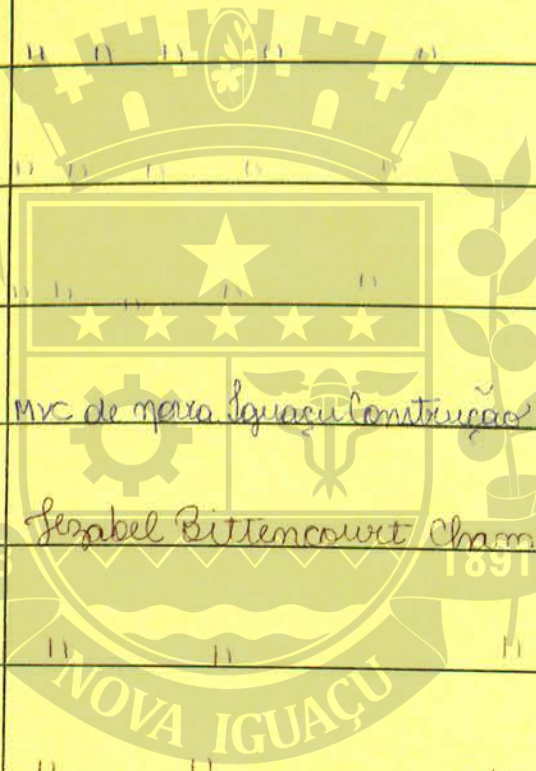 " " " " "
" " " " "
" " " " "
MVC de nova Iguaçu Construção
Jezabel Bittencourt Cham
1891
" " "
NOVA IGUAÇU
" "